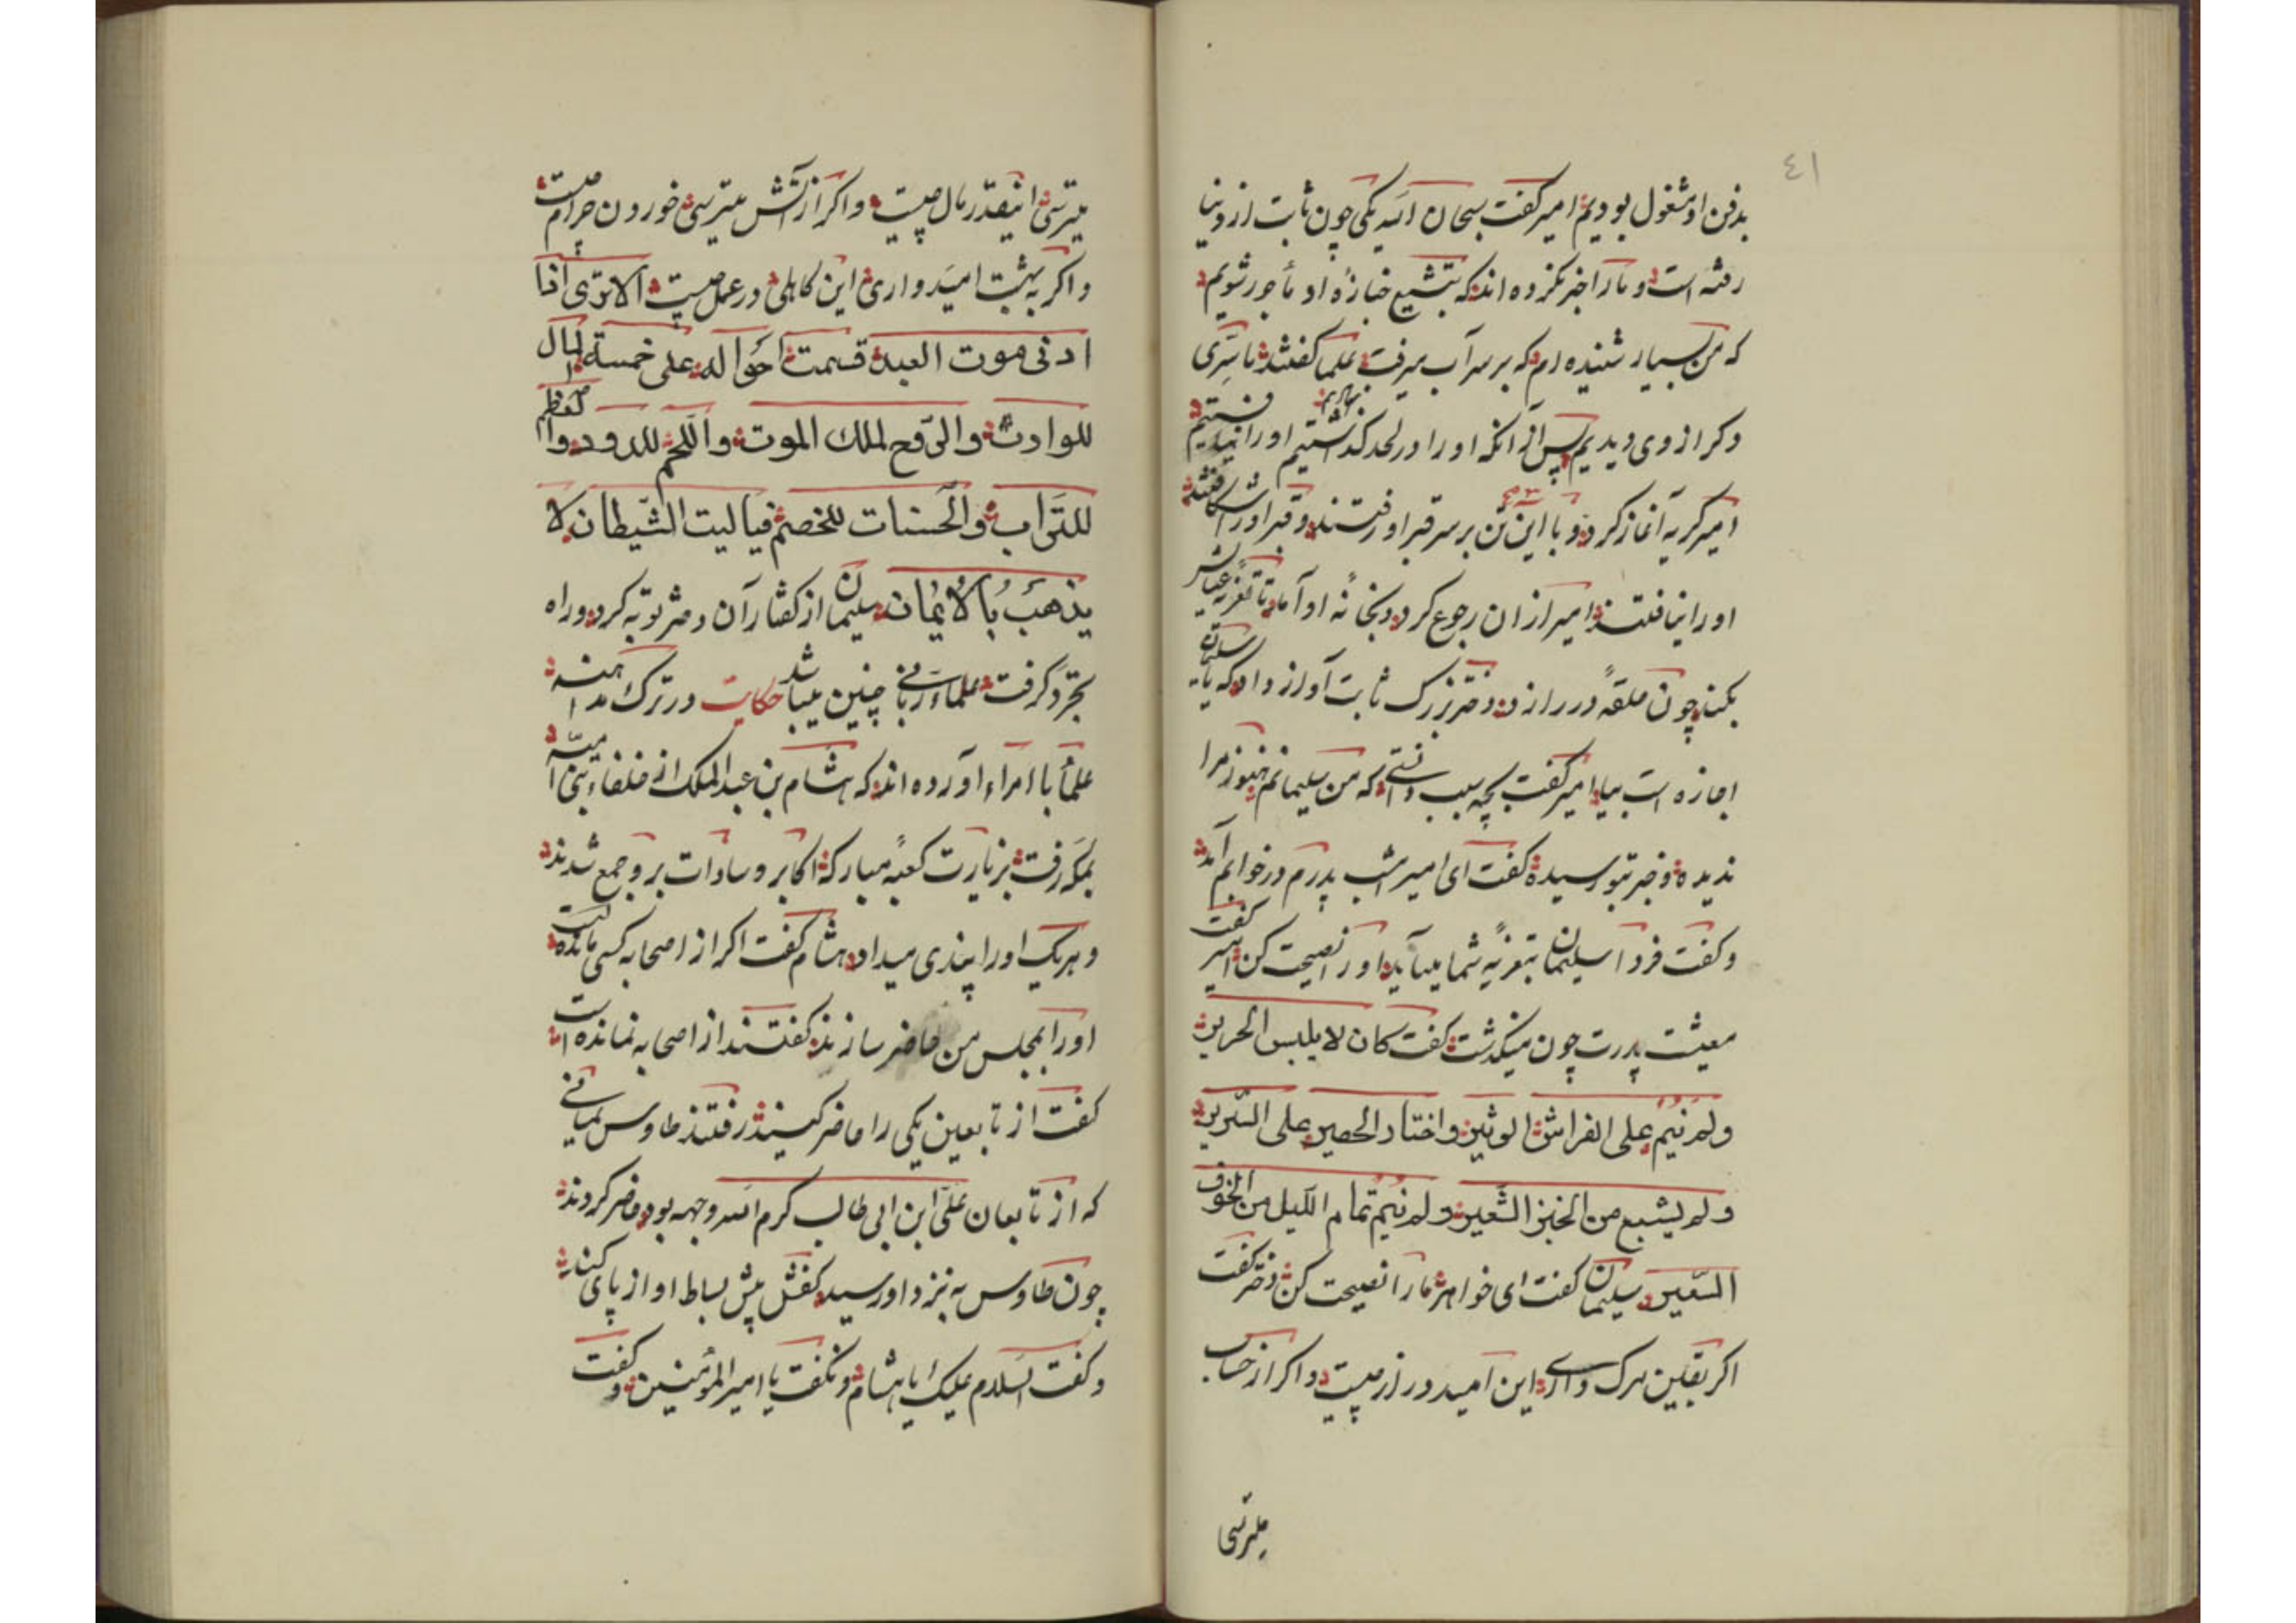 ٤١
بدفن او مشغول بودیم امیر کفت سبحان الله یکی چون ثابت از دنیا
رفته است و مارا خبر نکرده اند که بتشییع جنازهٔ او مأجور شویم
که من بسیار شنیده ام که بر سر آب میرفت علما کفتند ما سرّی
دکر از وی دیدیم پس از آنکه اورا در لحد کذاشتیم اورا نیافتیم
امیر کریه آغاز کرد و با این تن بر سر قبر او رفتند و قبر اورا شکافتند
اورا نیافتند امیر ازان رجوع کرد و بخانهٔ او آمد تا تعزیه عیالش
بکند چون حلقهٔ در را زد دختر بزرک ثابت آواز داد که یا سلیمان
اجازه است بیا امیر کفت بچه سبب دانستی که من سلیمانم هنوز مرا
ندیده و خبر بتو نرسیده کفت ای امیر شب پدرم در خوابم آمد
و کفت فردا سلیمان بتعزیهٔ شما میآید اورا نصیحت کن امیر کفت
معیشت پدرت چون میکذشت کفت کان لا یلبس الحریر
ولم ینم علی الفراش الوثیر واختار الحصیر علی السّریر
ولم یشبع من الخبز الشّعیر ولم ینم تمام اللّیل من الخوف
السّعیر سلیمان کفت ای خواهر مارا نصیحت کن دختر کفت
اکر بقین مرک داری این امید دراز چیست و اکر از حساب
میترسی
میترسی اینقدر مال چیست و اکر از آتش میترسی خوردن حرام چیست
و اکر بهشت امیدواری این کاهلی در عمل چیست الا تری اذا
ادنی موت العبد قسمت احواله علی خمسة المال
للوارث والرّوح لملک الموت واللّحم للدود والعظم
للتّراب والحسنات للخصم فیا لیت الشّیطان لا
یذهب بالایمان سلیمان از کفتار آن دختر توبه کرد و راه
تجرد کرفت علماء ربانی چنین میباشد حکایت در ترک مداهنه
علمأ با امراء آورده اند که هشام بن عبدالملک از خلفاء بنی امیّه
بمکه رفت بزیارت کعبهٔ مبارکه اکابر و سادات بر و جمع شدند
و هر یک اورا پندی میداد هشام کفت اکر از اصحابه کسی مانده است
اورا بمجلس من حاضر سازند کفتند از اصحابه نمانده است
کفت از تابعین یکی را حاضر کنید رفتند طاوس یمانی
که از تابعان علی ابن ابی طالب کرم الله وجهه بود حاضر کردند
چون طاوس به نزد او رسید کفش پیش بساط او از پای کند
و کفت السلام علیک یا هشام و نکفت یا امیر المؤمنین و کفت